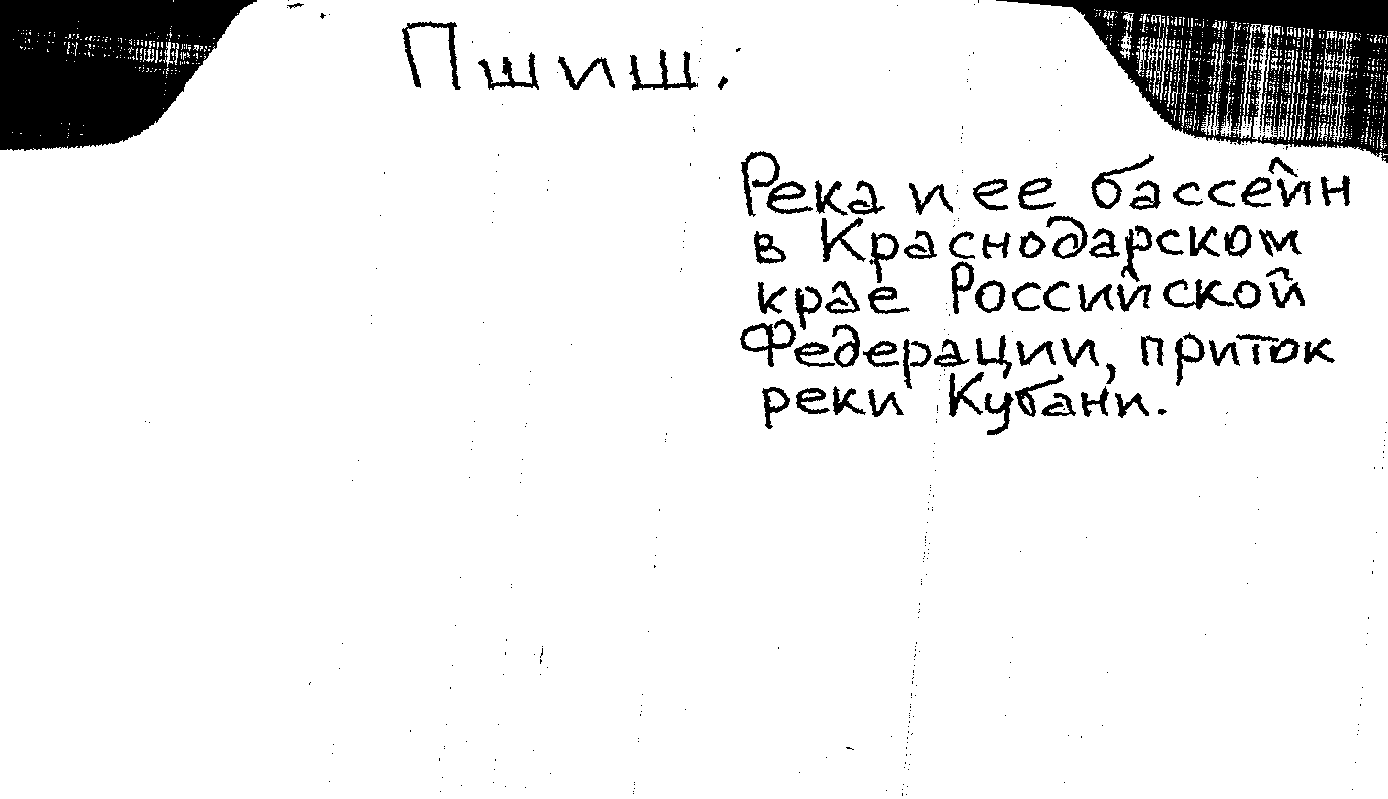 Пшиш.
Река и ее бассейн
в Краснодарском
крае Российской
Федерации, приток
реки Кубани.